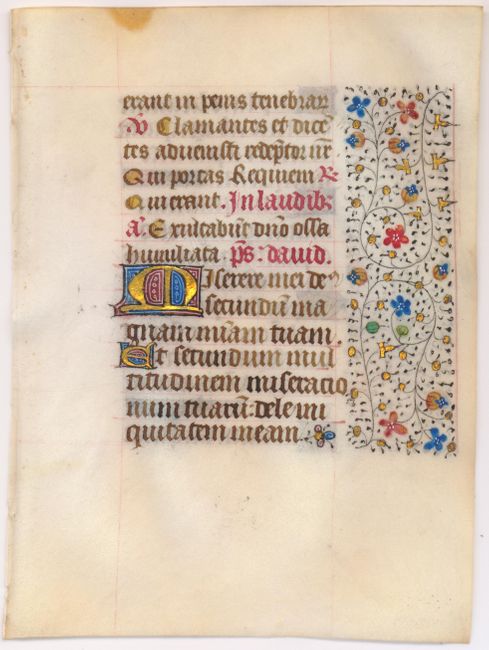 erant in penis tenebrarꝝ
℣ Clamantes et dicē
tes advenisti redēptor nr̄
Qui portas Requiem ℞
Qui erant. In laudibꝫ
a. Exultabūt dnō ossa
humiliata. p̄s. david.
Miserere mei deꝰ
secundū ma
gnam miām tuam
Et secundum mul
titudinem miseracio
num tuarū: dele ini
quitatem meam.